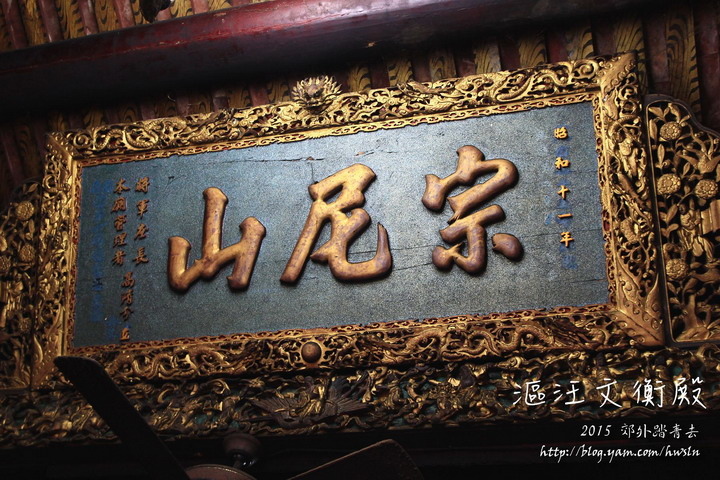 昭和十一年
宗尼山
將軍庄長
本殿管理者 高昂分 立
漚汪文衡殿
2015 郊外踏青去
http://blog.yam.com/hwsln